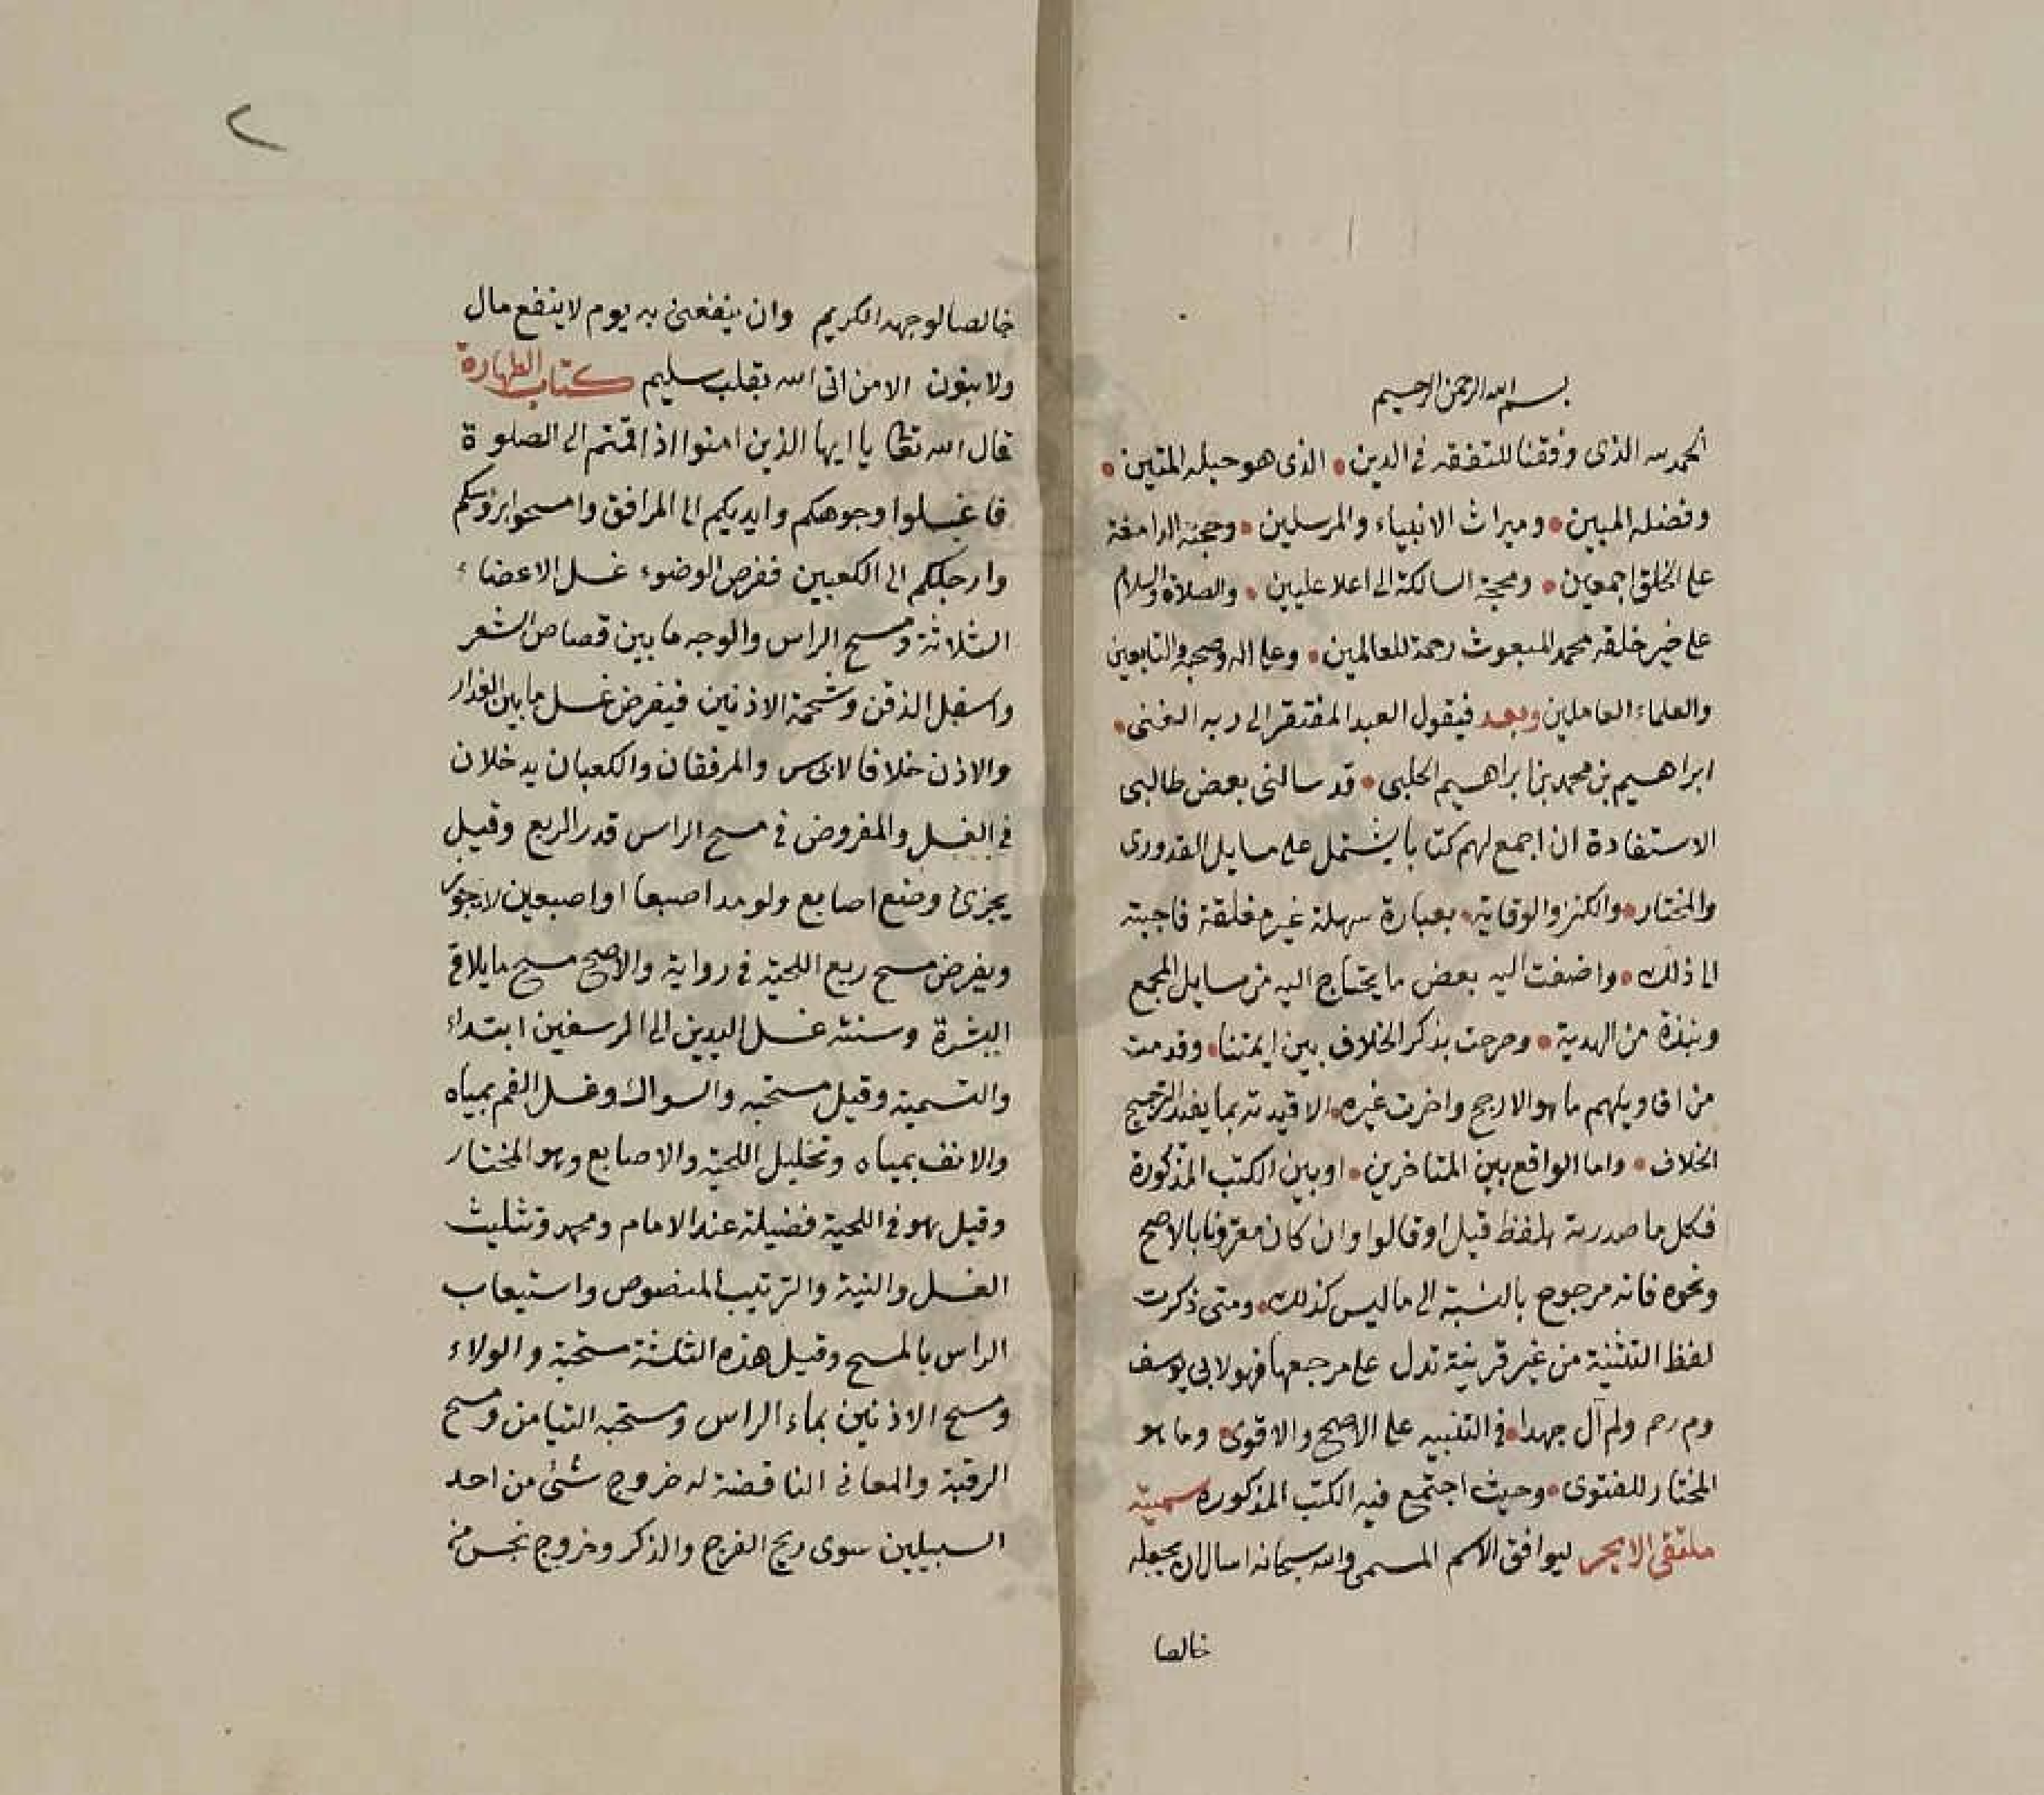 بسم الله الرحمن الرحيم
الحمد لله الذى وفقنا للتفقه فى الدين الذى هو حبله المتين
وفضله المبين وميراث الانبياء والمرسلين وحجته الدامغة
على الخلق اجمعين ومحجته السالكة الى اعلا عليين والصلاة والسلام
على خير خلقه محمد المبعوث رحمة للعالمين وعلى اله وصحبه والتابعين
والعلماء العاملين وبعد فيقول العبد المفتقر الى ربه الغنى
ابراهيم بن محمد بن ابراهيم الحلبى قد سالنى بعض طالبى
الاستفادة ان اجمع لهم كتابا يشتمل على مسايل القدورى
والمختار والكنز والوقاية بعبارة سهلة غير مغلقة فاجبته
الى ذلك واضفت اليه بعض ما يحتاج اليه من مسايل المجمع
ونبذة من الهدية وصرحت بذكر الخلاف بين ايمتنا وقدمت
من اقاويلهم ما هو الارجح واخرت غيره الا قيدته بما يفيد الترجيح
الخلاف واما الواقع بين المتاخرين او بين الكتب المذكورة
فكل ما صدرته بلفظ قيل او قالوا وان كان مقرونا بالاصح
ونحوه فانه مرجوح بالنسبة الى ما ليس كذلك ومتى ذكرت
لفظ التثنية من غير قرينة تدل على مرجعها فهو لابى يوسف
وم رحم ولم آل جهدا فى التنبيه على الاصح والاقوى وما هو
المختار للفتوى وحيث اجتمع فيه الكتب المذكوره سميته
ملتقى الابحر ليوافق الاسم المسمى والله سبحانه اسال ان يجعله
خالصا
٢
خالصا لوجهه الكريم وان ينفعنى به يوم لا ينفع مال
ولا بنون الا من اتى الله بقلب سليم كتاب الطهارة
قال الله تعا يا ايها الذين امنوا اذا قمتم الى الصلوة
فاغسلوا وجوهكم وايديكم الى المرافق وامسحوا برؤسكم
وارجلكم الى الكعبين ففرض الوضوء غسل الاعضاء
الثلاثة ومسح الراس والوجه ما بين قصاص الشعر
واسفل الذقن وشحمة الاذنين فيفرض غسل ما بين العذار
والاذن خلافا لابى س والمرفقان والكعبان يدخلان
فى الغسل والمفروض فى مسح الراس قدر الربع وقيل
يجزئ وضع اصابع ولو مد اصبعا او اصبعين لا يجوز
ويفرض مسح ربع اللحية فى رواية والاصح مسح ما يلاقى
البشرة وسنته غسل اليدين الى الرسغين ابتداء
والتسمية وقيل مستحبه والسواك وغسل الفم بمياه
والانف بمياه وتخليل اللحية والاصابع وهو المختار
وقيل هو فى اللحية فضيلة عند الامام ومحمد وتثليث
الغسل والنية والترتيب المنصوص واستيعاب
الراس بالمسح وقيل هذه الثلثة مستحبة والولاء
ومسح الاذنين بماء الراس ومستحبه التيامن ومسح
الرقبة والمعانى الناقضة له خروج شئ من احد
السبيلين سوى ريح الفرج والذكر وخروج نجس من